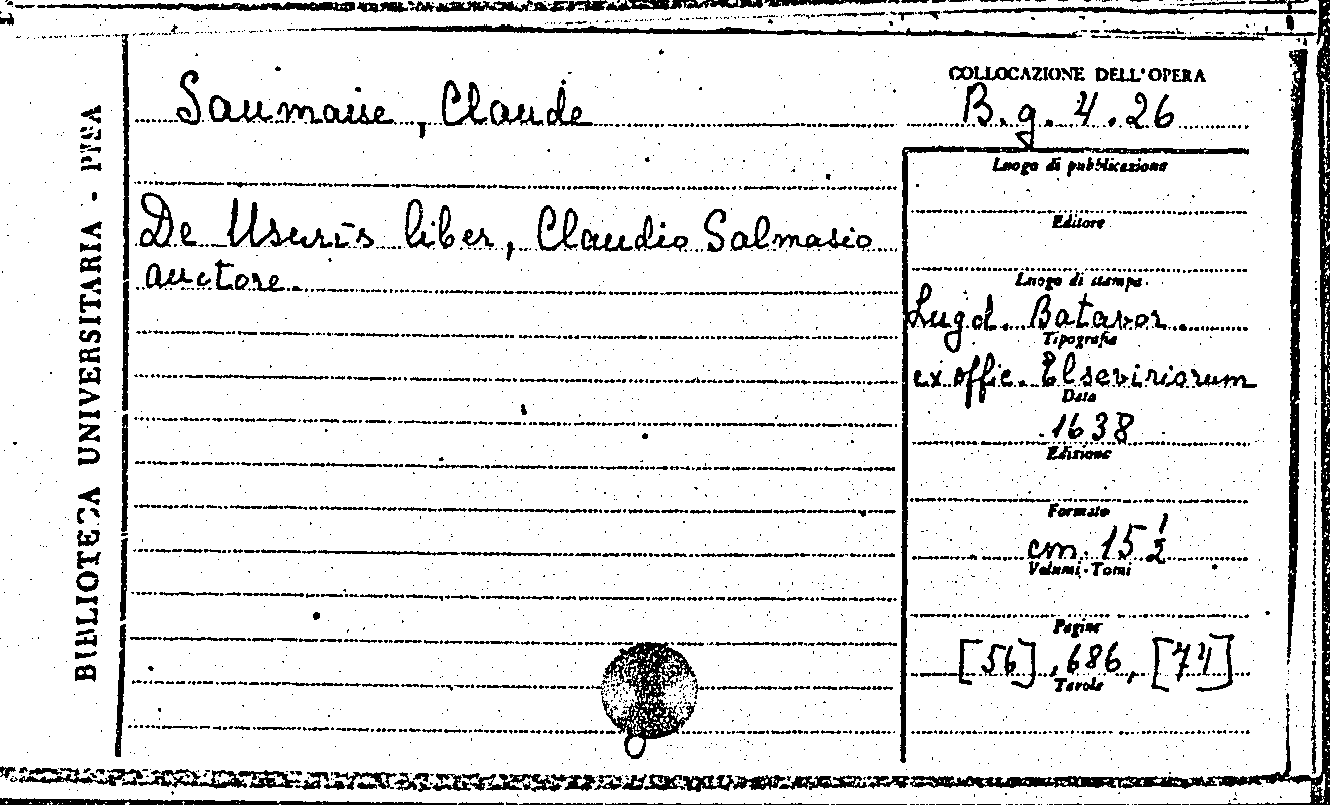 BIBLIOTECA UNIVERSITARIA - PISA
Saumaise, Claude
De Usuris liber, Claudio Salmasio
auctore.
COLLOCAZIONE DELL'OPERA
B.g.4.26
Luogo di pubblicazione
Editore
Luogo di stampa
Lugd. Batavor.
Tipografia
ex offic. Elseviriorum
Data
1638
Edizione
Formato
cm. 15 1/2
Volumi - Tomi
Pagine
[56], 686, [74]
Tavole